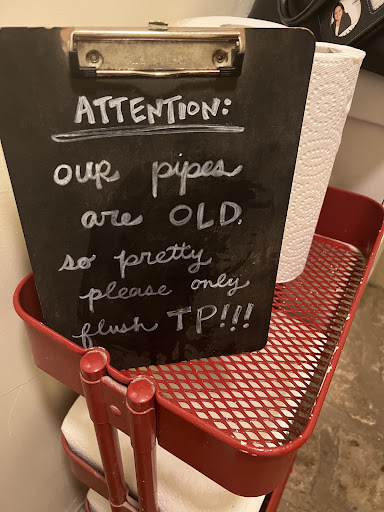 ATTENTION:
our pipes
are OLD.
so pretty
please only
flush TP!!!